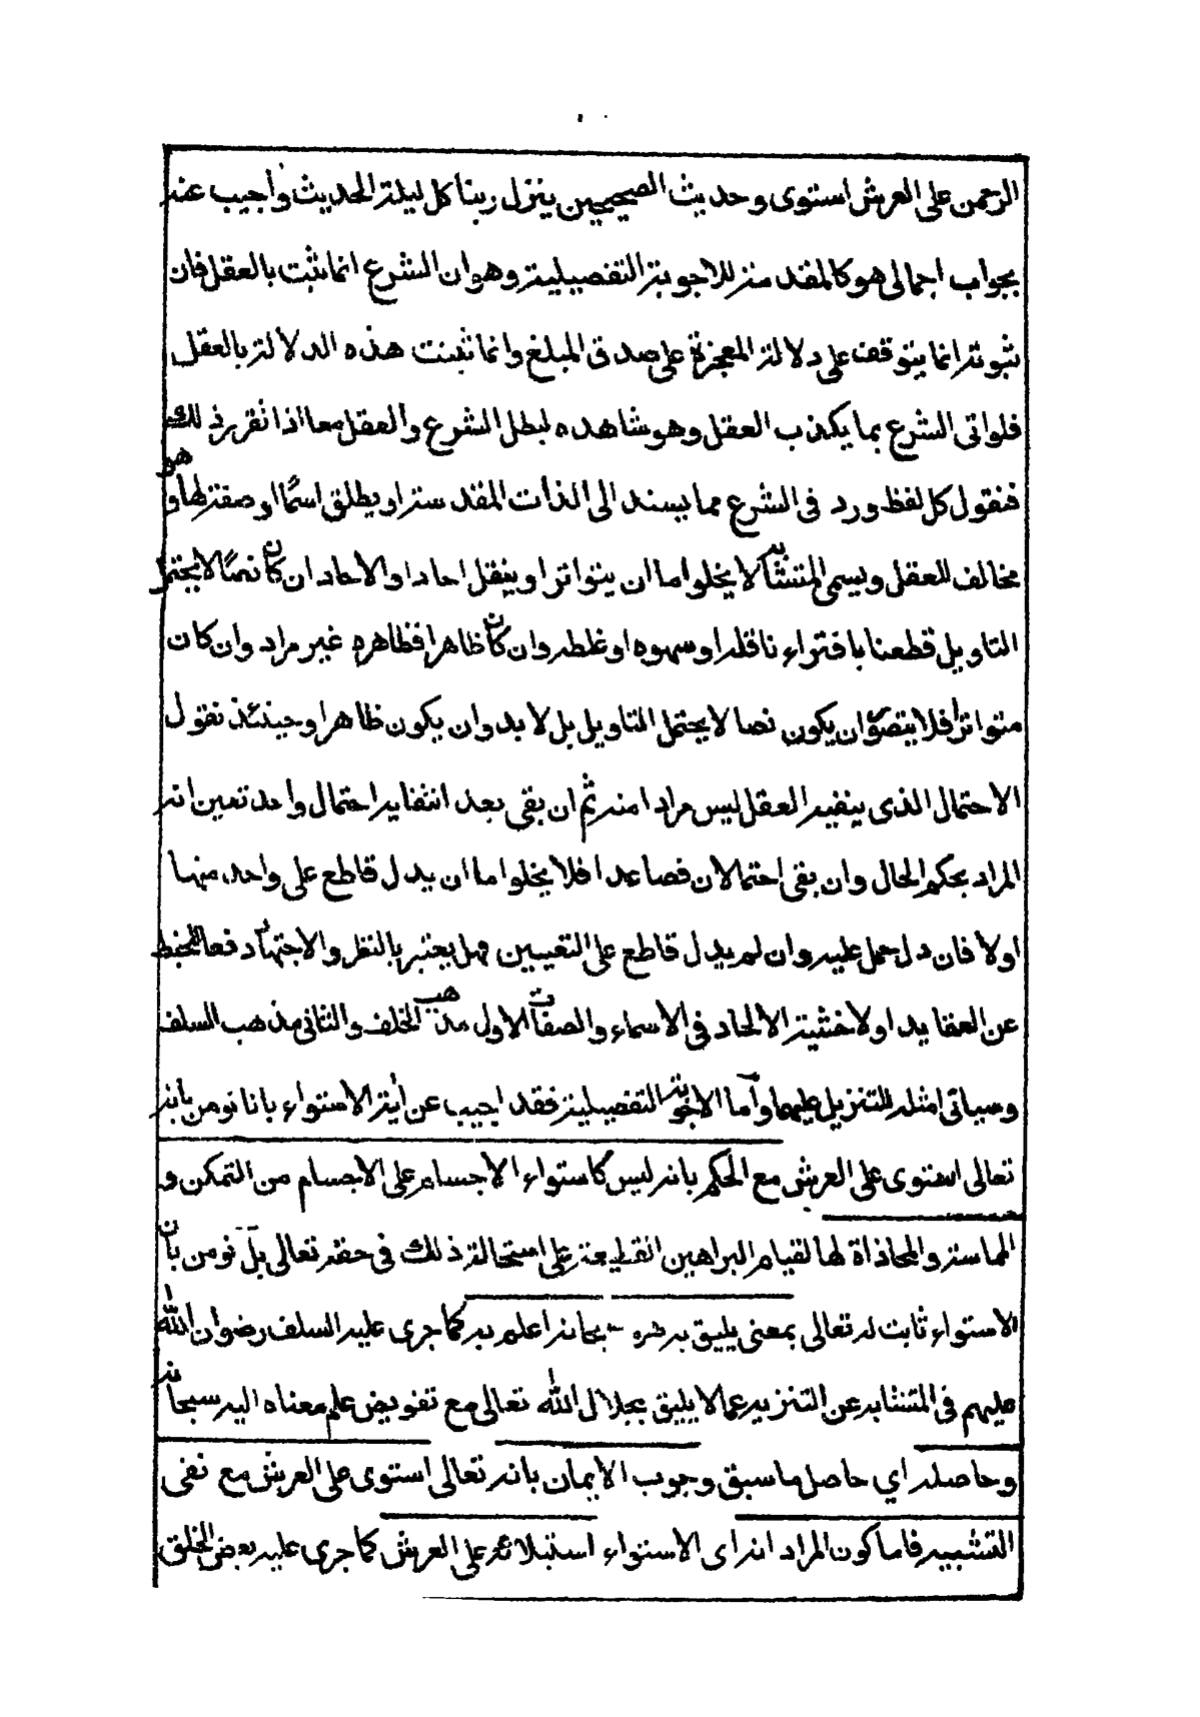 الرحمن على العرش استوى وحديث الصحيحين ينزل ربنا كل ليلة الحديث واجيب عنه
بجواب اجمالي هو كالمقدمة للاجوبة التفصيلية وهو ان الشرع انما ثبت بالعقل فان
ثبوته انما يتوقف على دلالة المعجزة على صدق المبلغ وانما ثبت هذه الدلالة بالعقل
فلو اتى الشرع بما يكذب العقل وهو شاهده لبطل الشرع والعقل معا اذا تقرر ذلك
فنقول كل لفظ ورد في الشرع مما يسند الى الذات المقدسة او يطلق اسمًا او صفة لها وهو
مخالف للعقل ويسمى المتشابه لا يخلو اما ان يتواتر او ينقل احادا والاحاد ان كان نصًا لا يحتمل
التاويل قطعنا بافتراء ناقله او سهوه او غلطه وان كان ظاهرا فظاهره غير مراد وان كان
متواترا فلا يتصور ان يكون نصا لا يحتمل التاويل بل لا بد وان يكون ظاهرا وحينئذ نقول
الاحتمال الذي ينفيه العقل ليس مرادا منه ثم ان بقى بعد انتفايه احتمال واحد تعين انه
المراد بحكم الحال وان بقى احتمالان فصاعدا فلا يخلو اما ان يدل قاطع على واحد منها
اولا فان دل حمل عليه وان لم يدل قاطع على التعيين فهل يعتبر بالنظر والاجتهاد دفعا للخبط
عن العقايد اولا خشية الالحاد في الاسماء والصفات الاول مذهب الخلف والثاني مذهب السلف
وسياتى امثلة للتنزيل عليهما واما الاجوبة التفصيلية فقد اجيب عن اية الاستواء بانا نومن بانه
تعالى استوى على العرش مع الحكم بانه ليس كاستواء الاجسام على الاجسام من التمكن و
المماسة والمحاذاة لها لقيام البراهين القطعية على استحالة ذلك في حقه تعالى بل نومن بان
الاستواء ثابت له تعالى بمعنى يليق به هو سبحانه اعلم به كما جرى عليه السلف رضوان الله
عليهم في المتشابه عن التنزيه عما لا يليق بجلال الله تعالى مع تفويض علم معناه اليه سبحانه
وحاصله اي حاصل ما سبق وجوب الايمان بانه تعالى استوى على العرش مع نفى
التشبيه فاما كون المراد انه اى الاستواء استيلائه على العرش كما جرى عليه بعض الخلق